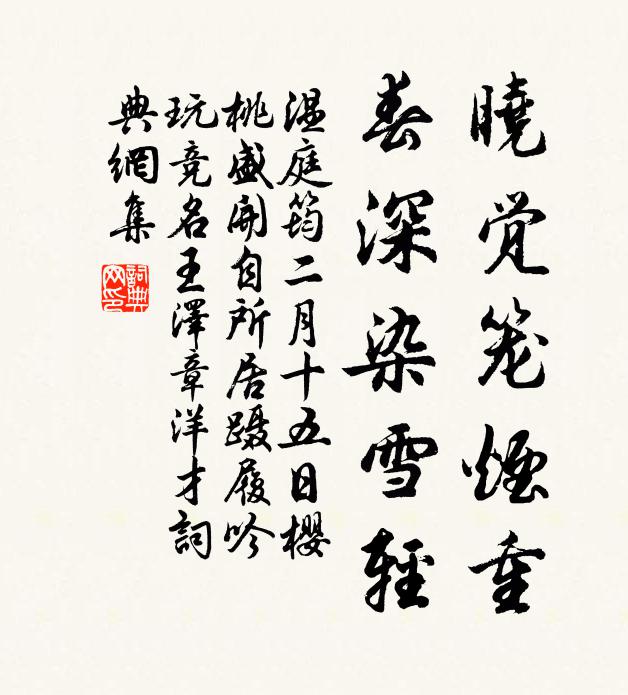 曉觉笼煙重
春深染雪輕
温庭筠二月十五日櫻
桃盛開自所居蹑履吟
玩竞名王澤章洋才詞
典網集
詞典
网印